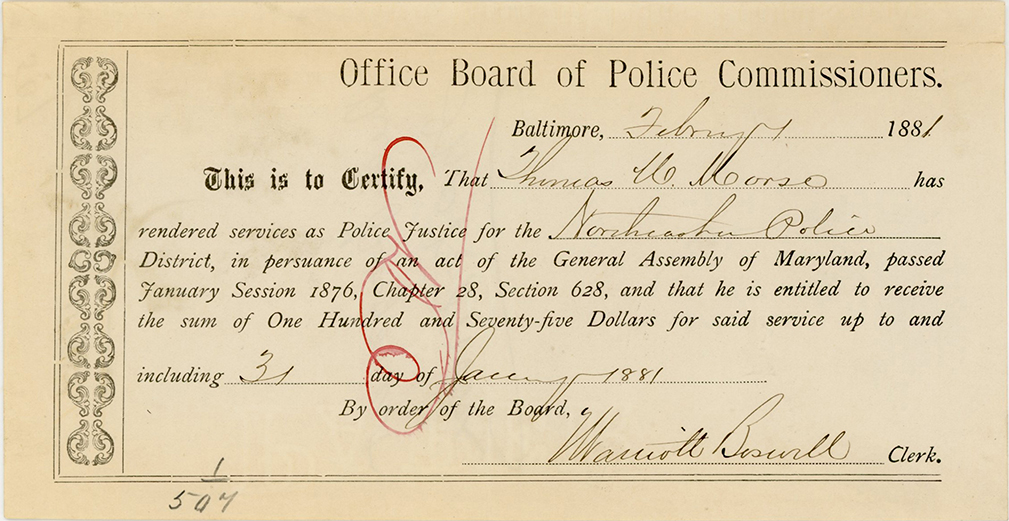 Office Board of Police Commissioners.
Baltimore, Febru'y 1 1881
This is to Certify, That Thomas W. Morse has
rendered services as Police Justice for the Northeastern Police
District, in persuance of an act of the General Assembly of Maryland, passed
January Session 1876, Chapter 28, Section 628, and that he is entitled to receive
the sum of One Hundred and Seventy-five Dollars for said service up to and
including 31 day of Jan'y 1881
By order of the Board,
Marriott Boswell Clerk.
1
507